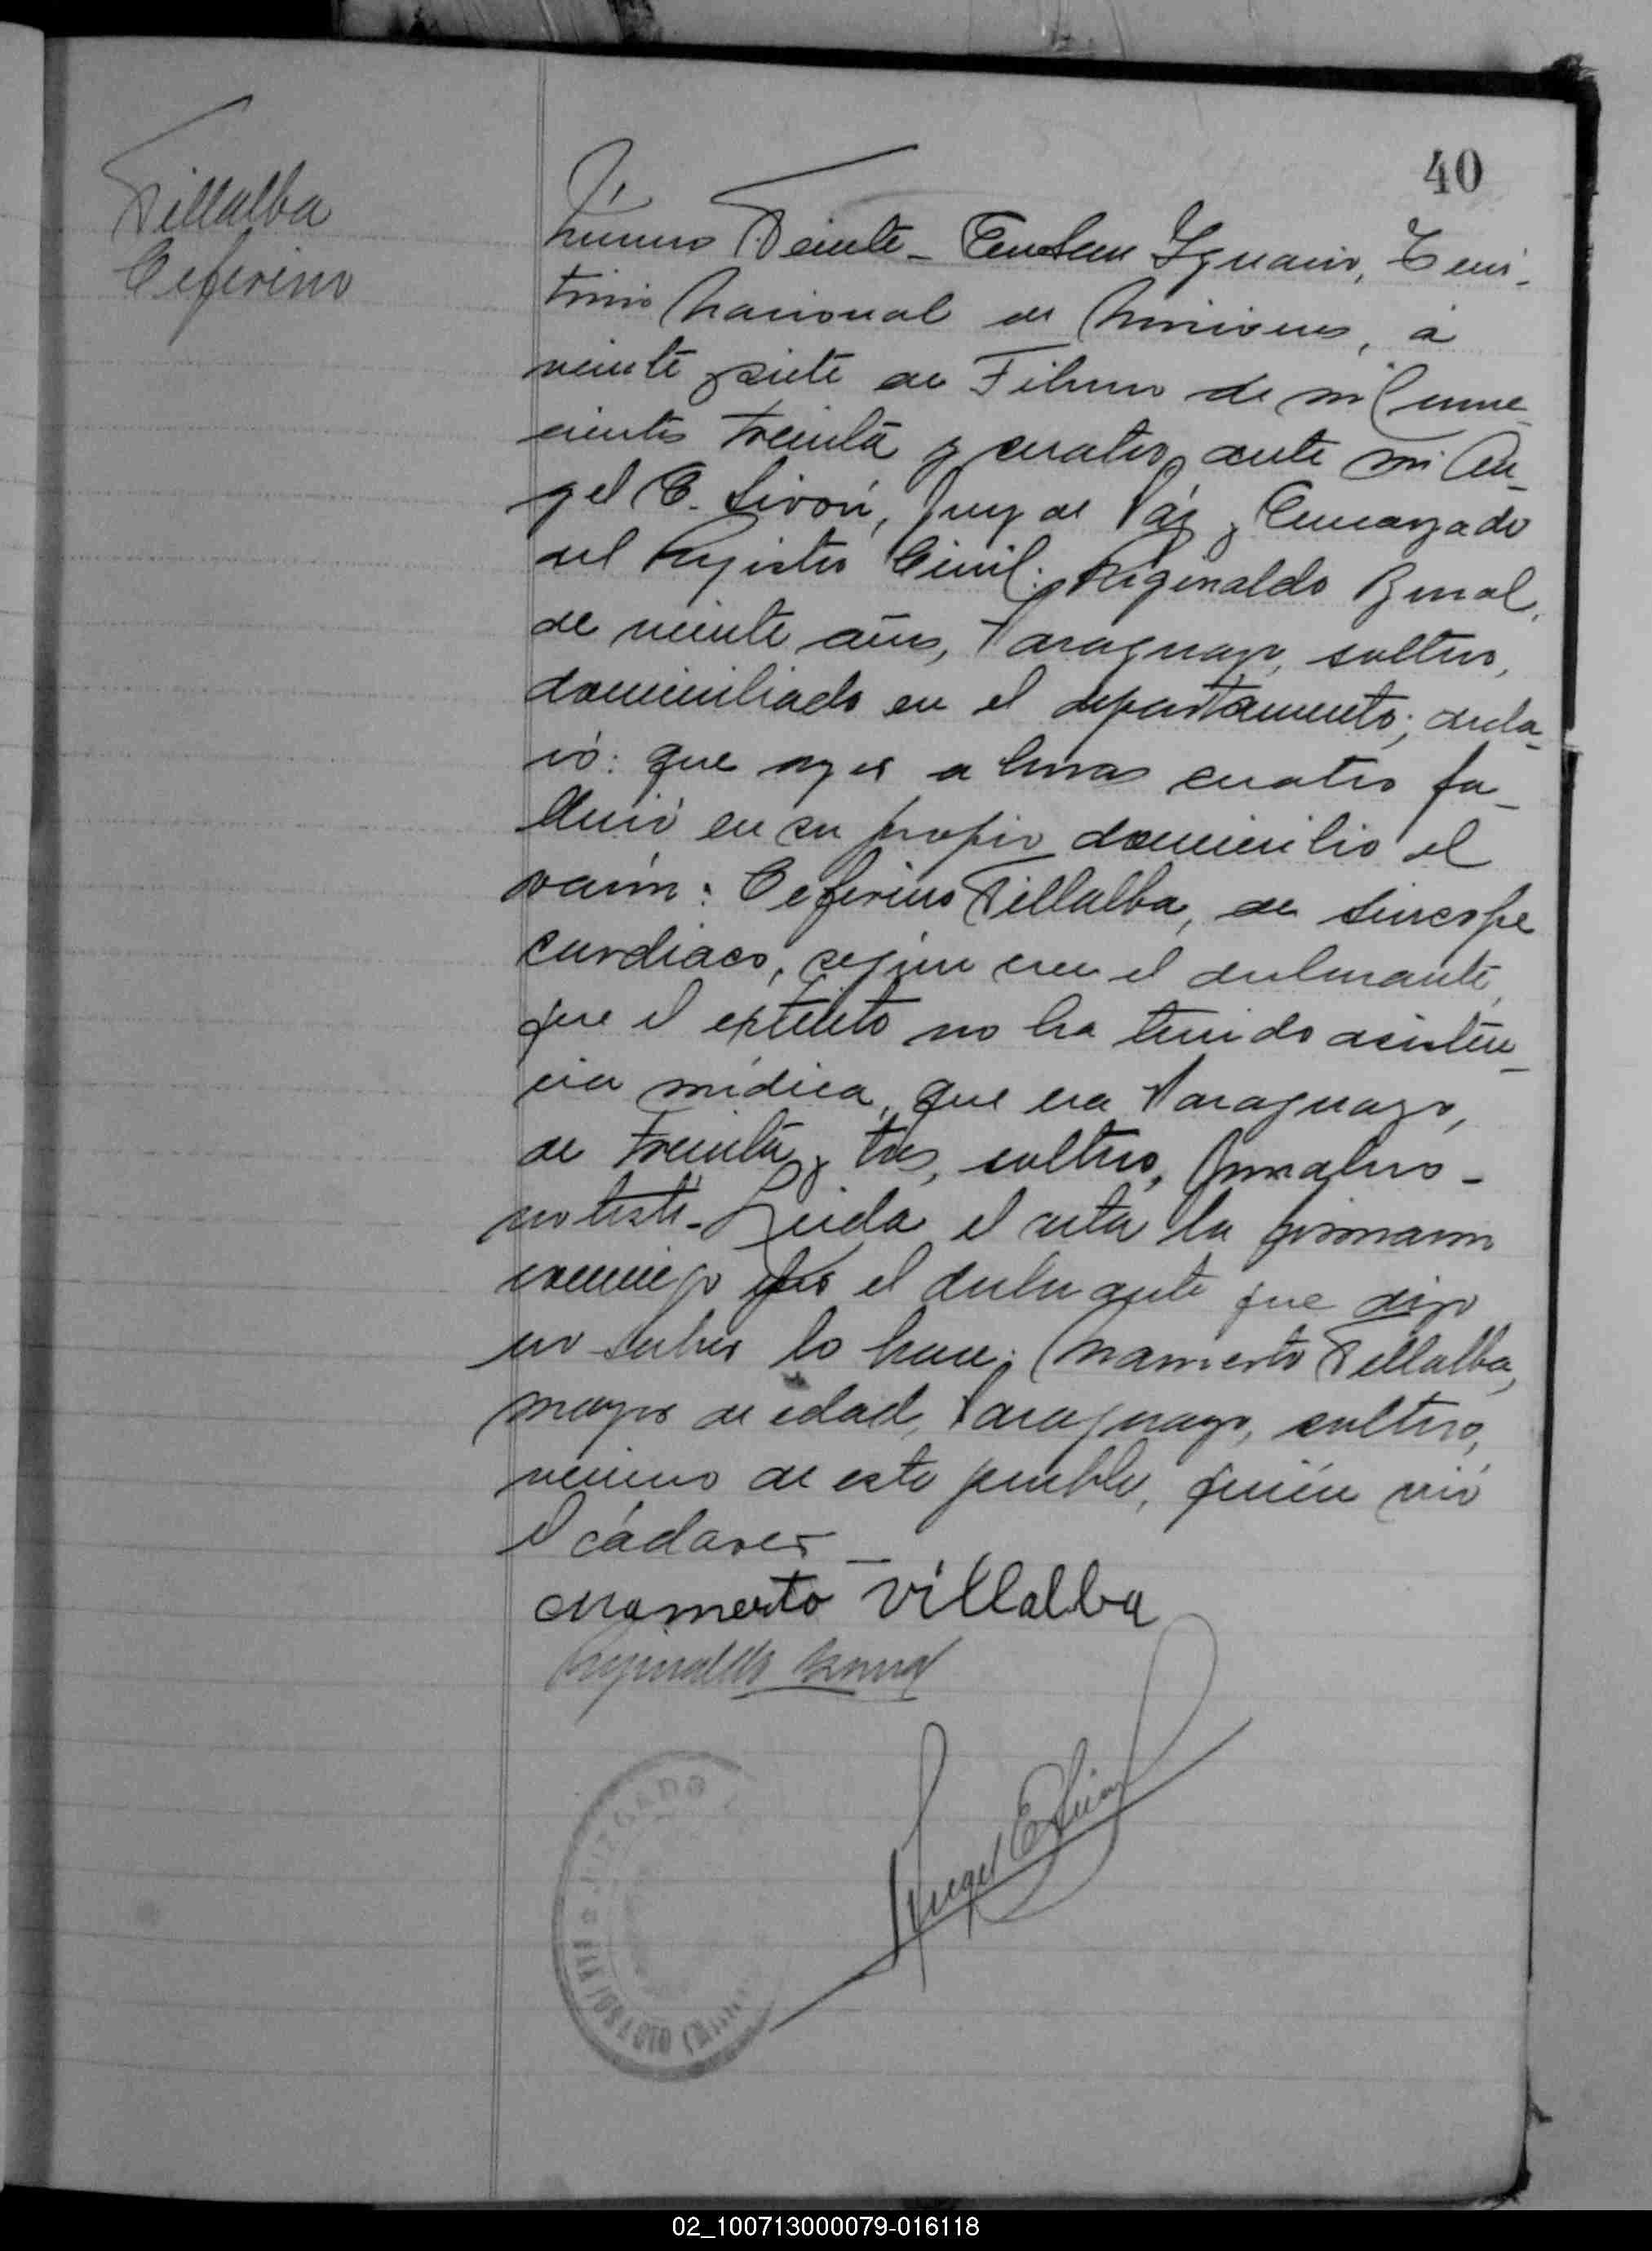 40
Villalba
Ceferino
Número Veinte - En San Ygnacio, Terri-
torio Nacional de Misiones, á
veinte y siete de Febrero de mil nove-
cientos treinta y cuatro, ante mi An-
gel E. Sivori, Juez de Páz y Encargado
del Registro Civil: Reginaldo Bernal,
de veinte años, Paraguayo, soltero,
domiciliado en el departamento; decla-
ró: que ayer a horas cuatro fa-
lleció en su propio domicilio el
varón: Ceferino Villalba, de sincope
cardiaco, según cree el declarante,
que el extinto no ha tenido asisten-
cia médica, que era Paraguayo,
de treinta y tres, soltero, Jornalero -
no testó - Leida el acta la firmaron
conmigo por el declarante que dijo
no saber lo hace: Mamerto Villalba,
mayor de edad, Paraguayo, soltero,
vecino de este pueblo, quién vió
el cádaver -
Mamerto Villalba
Reginaldo Bernal
Angel E Sivori
JUZGADO
SAN IGNACIO (Misiones)
02_100713000079-016118